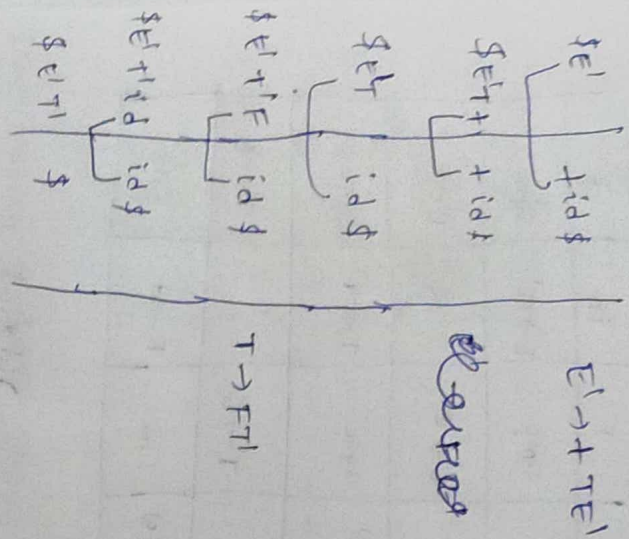 $E' +id$ E'→+TE'
$E'T+ +id$
$E'T id$
$E'T'F id$ T→FT'
$E'T'id id$
$E'T' $